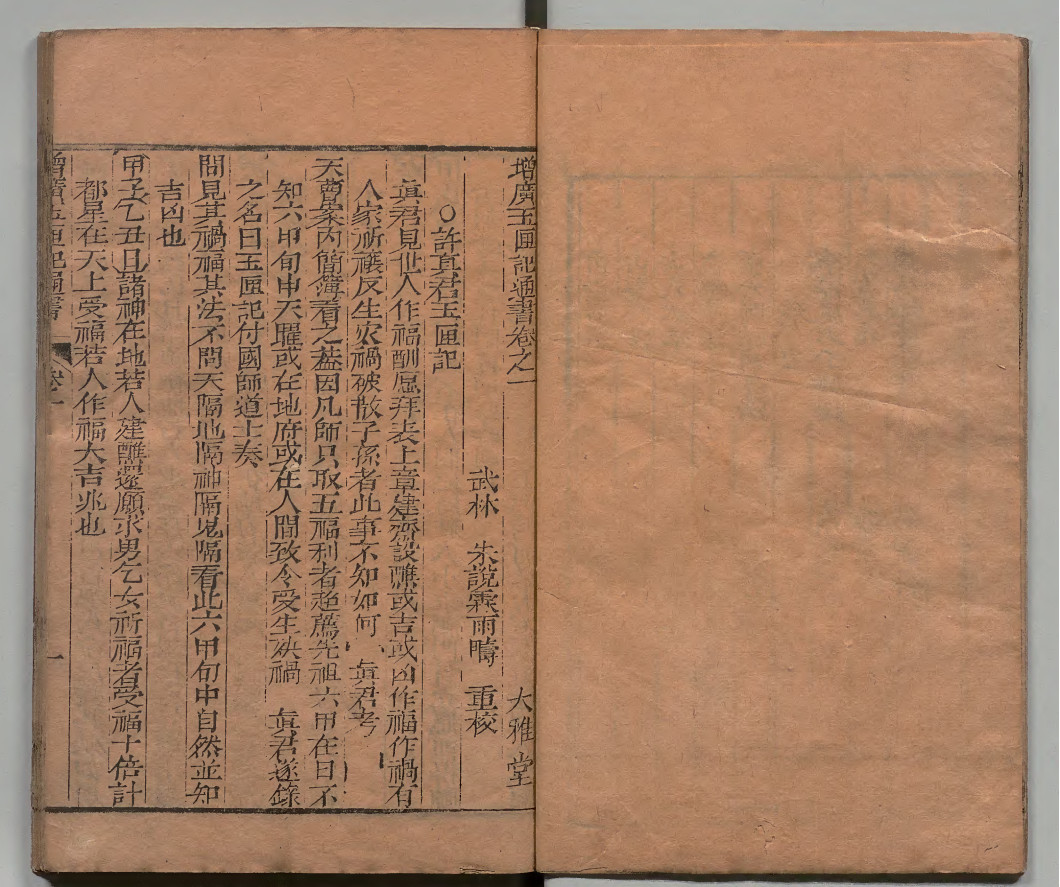 增廣玉匣記通書卷之一 大雅堂
武林 朱說霖雨疇 重校
○許真君玉匣記
真君見世人作福酬愿拜表上章建齋設醮或吉或凶作福作禍有
人家祈禳反生灾禍破散子孫者此事不知如何 真君考
天曹案内簡簿看之葢因凡師只取五福利者超薦先祖六甲在日不
知六甲旬中天曜或在地府或在人間致令受生殃禍 真君遂錄
之名曰玉匣記付國師道士奏
問見其禍福其法不問天隔地隔神隔鬼隔看此六甲旬中自然並知
吉凶也
甲子乙丑日諸神在地若人建醮還願求男乞女祈福者受福十倍計
都星在天上受福若人作福大吉兆也
增廣玉匣記通書 卷一 一